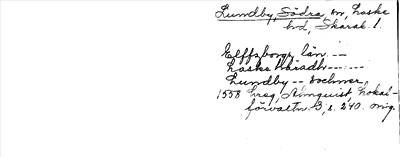 Lundby, Södra, sn, Laske
hd, Skarab. l.
Elffzborgs län. --
Laske Häradh -- --
Lundby -- sochner,
1558 hreg, Almquist, Lokal-
förvaltn. 3, s. 240. orig.